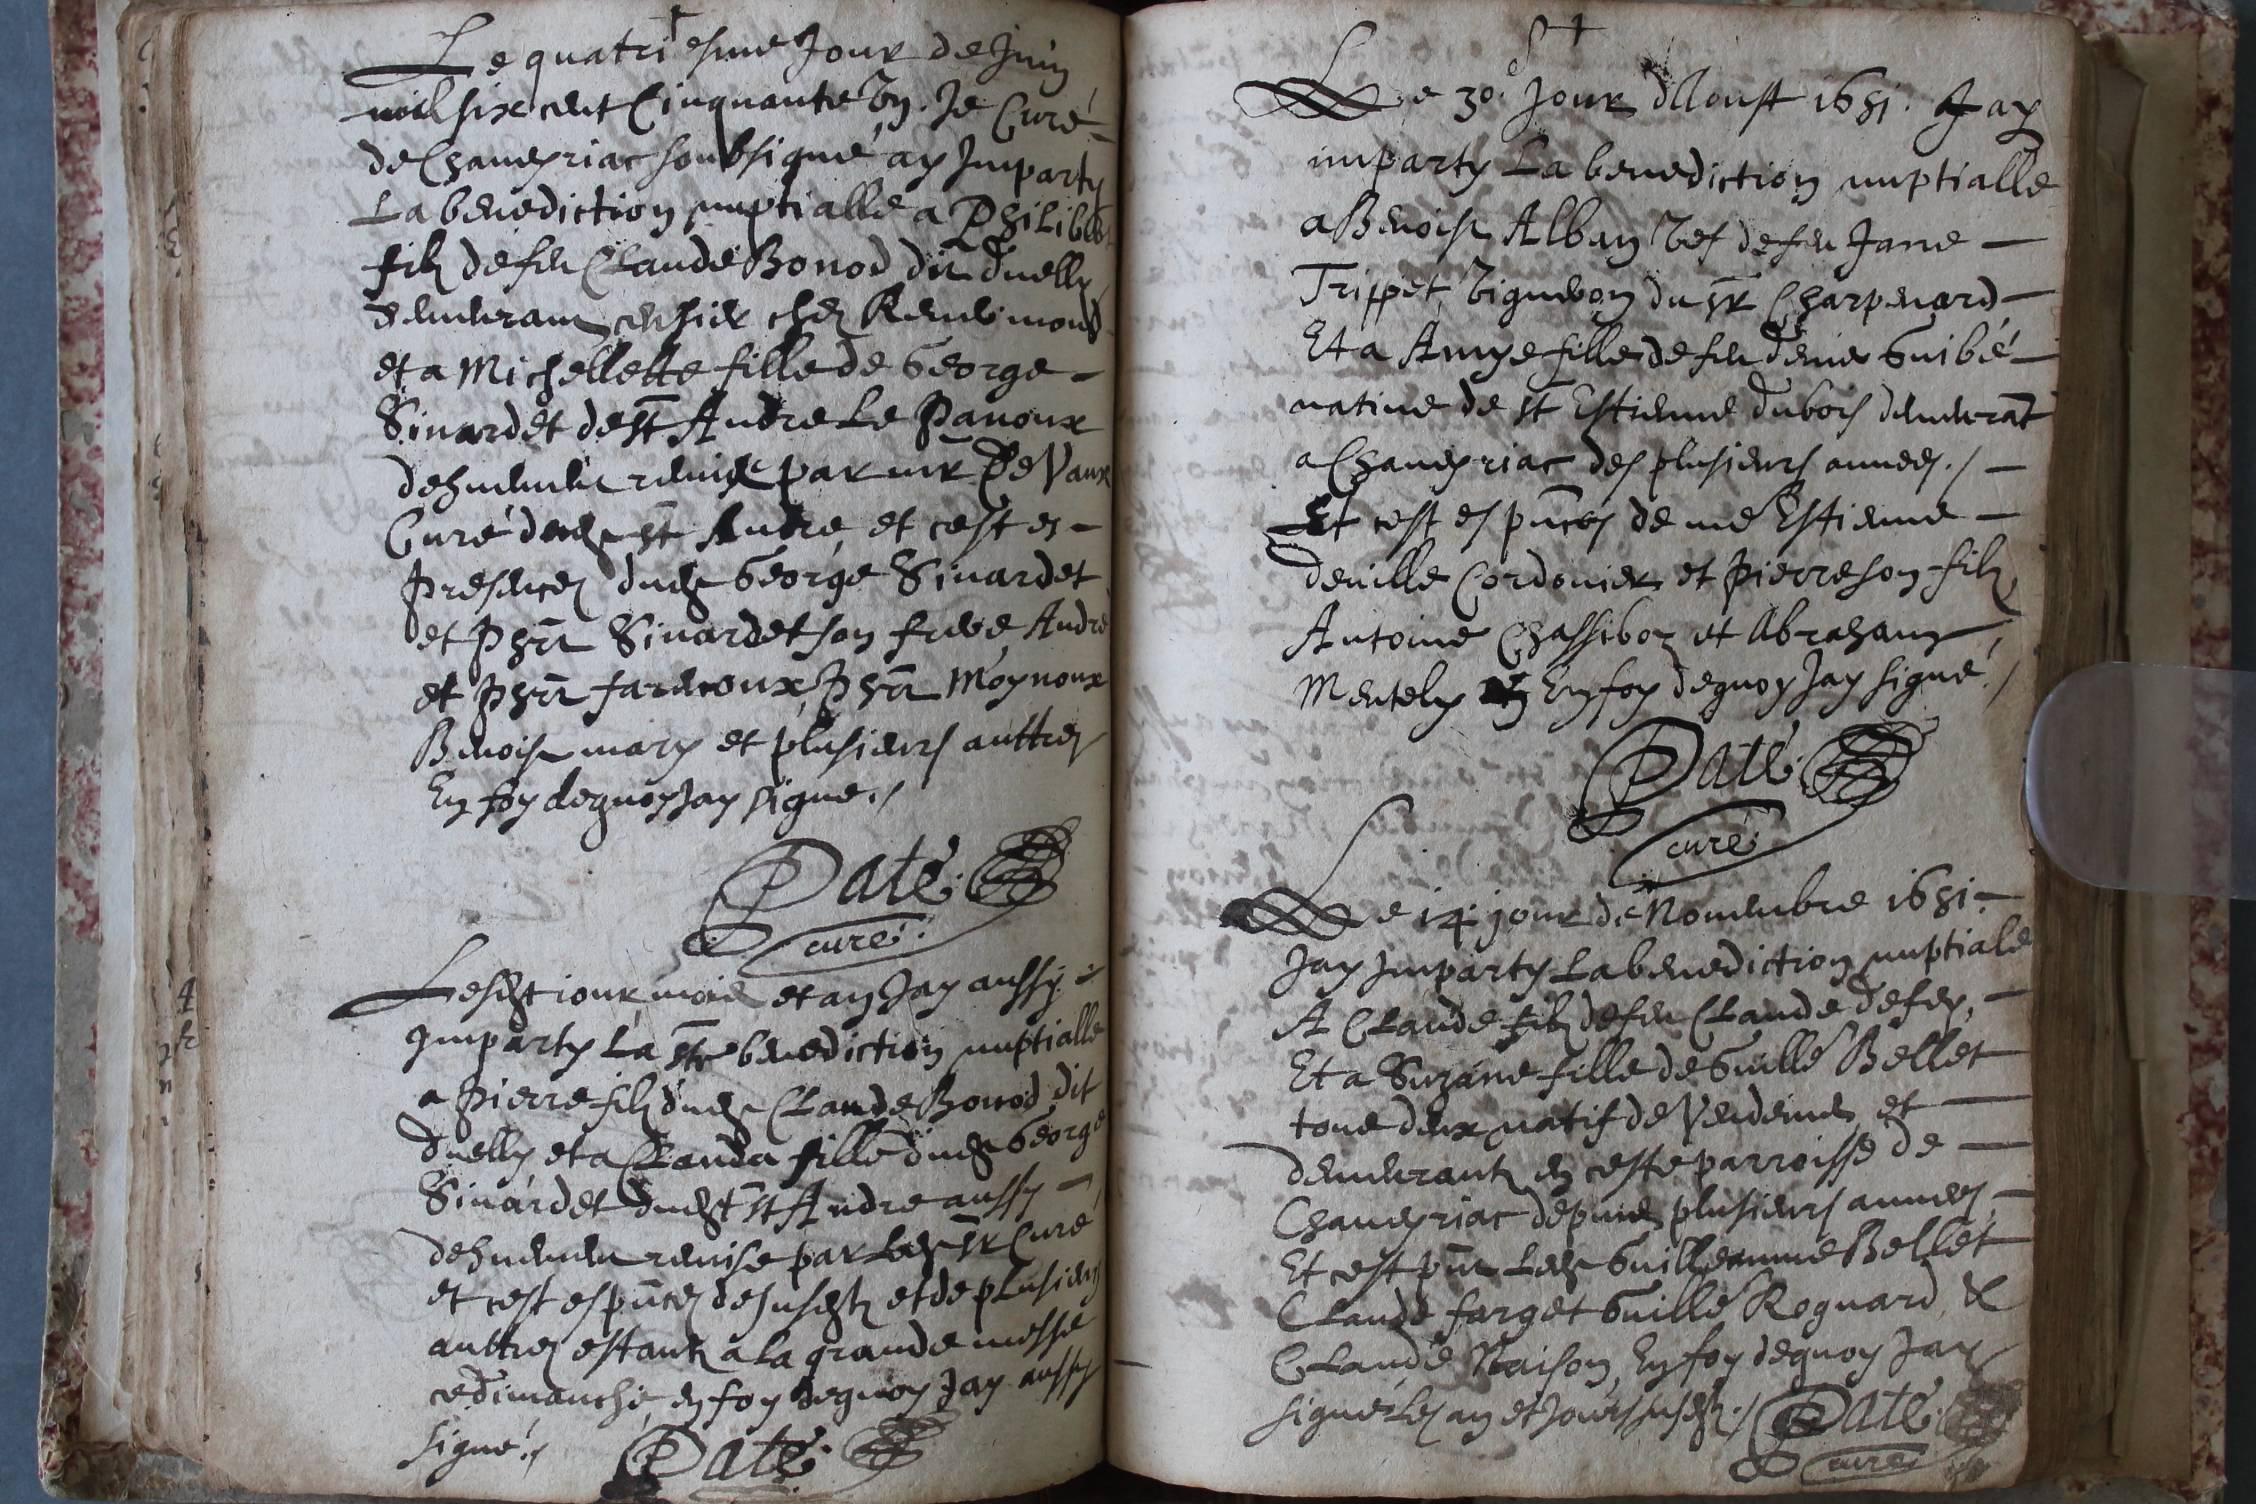 Le quatriesme Jour de Juin
mil six cent Cinquante Vn. Je Curé
de Chaveyriac soubsigné ay Imparty
La benediction nuptialle a Philibert
filz de feu Claude Bonod dit Duelly
demeurant chez
et a Michellette fille de George
Sinardet de st Andre Le Panoux
dehuement remise par mr De Vaux
Curé dudt st André, et c'est en
presences dudt George Sinardet
et Phrt Sinardet son frere, André
et Phrt farenoux, Phrt Moynoux
Benoist mary et plusieurs auttres
En foy dequoy Jay signé./
Paté.
curé.
Lesdt iour mois et an Jay aussy
Imparty La ste benediction nuptialle
a Pierre filz dudt Claude Bonod dit
Duelly et a Clauda fille dudt George
Sinardet dudt st Andre aussy
dehuement remise par Ledt sr Curé
et c'est es pnces desusdtz et de plusieurs
auttres estantz a la grande messe
ce dimanche, en foy dequoy Jay aussy
signé./ Paté.
Le 30e Jour dAoust 1651. Jay
imparty La benediction nuptialle
a Benoist Alban vef de feu Jane
Trippet, Vigneron du sr Charpenard
Et a Amye fille de feu Denis Guibé
native de st Estienne dubois demeurãt
a Chaveyriac des plusieurs annees./
Et c'est es pnces de me Estienne
Deville Cordonier et Pierre son filz
Antoine Chassiboz et Abraham
Mentely En foy dequoy Jay signé./
Paté.
curé
Le 14. jour de Novembre 1651.
Jay Imparty La benediction nuptiale
A Claude filz de feu Claude Defey,
Et a Suzane fille de Guille Bellet
tous deux natif de Vendeins et
demeurantz en ceste parroisse de
Chaveyriac depuis plusieurs annees,
Et c'est pnt Ledt Guilleaume Bellet
Claude farget Guille Roguard &
Claude Naison, En foy dequoy Jay
signé Les an et Jour susdtz./ Paté.
curé